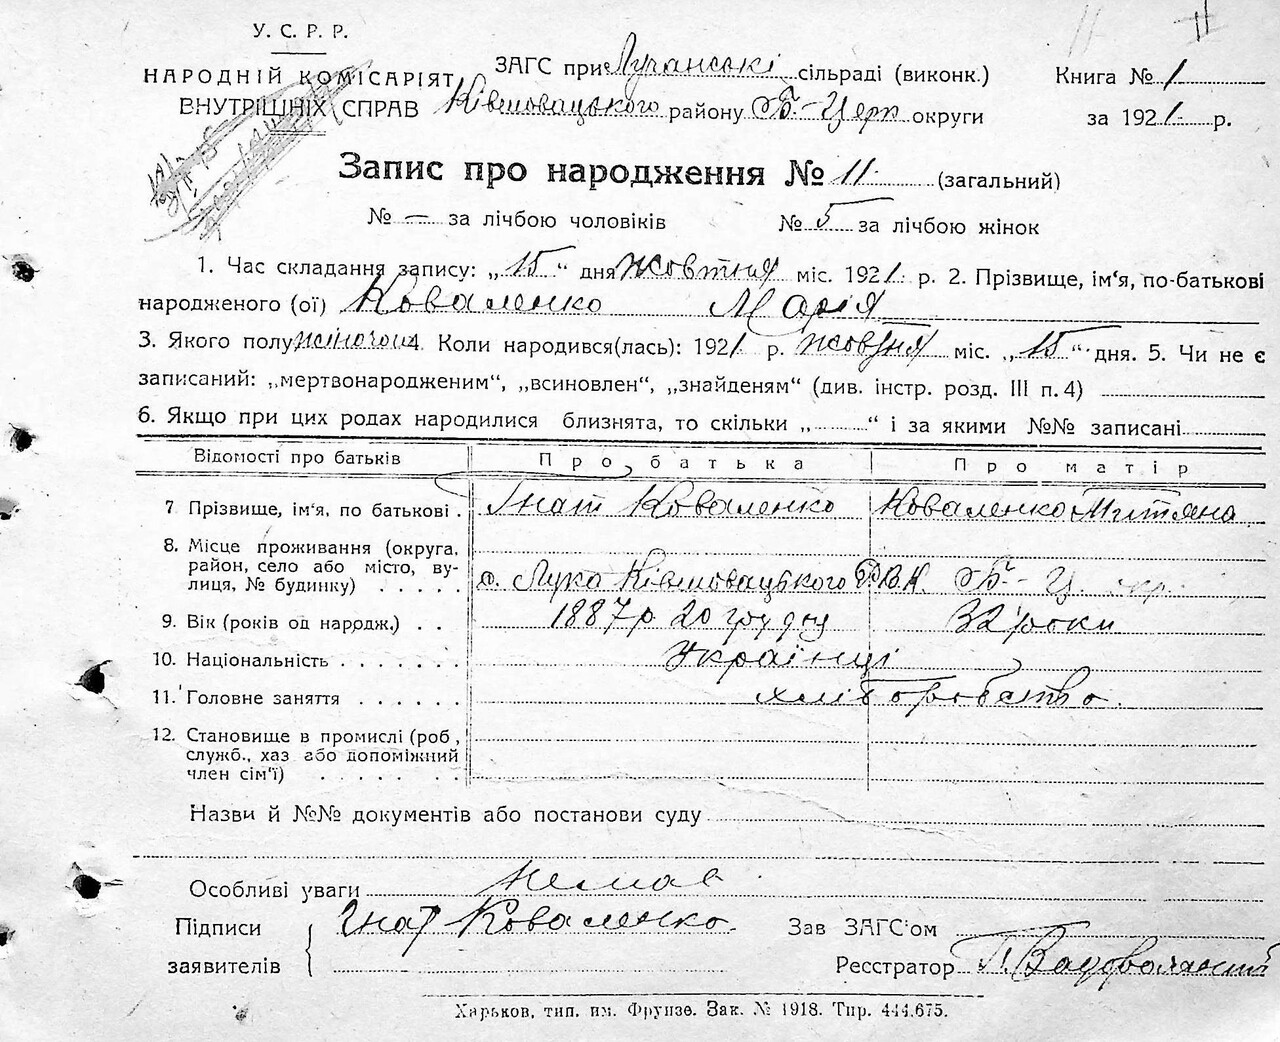 У. С. Р. Р.
НАРОДНІЙ КОМІСАРІЯТ
ВНУТРІШНІХ СПРАВ
ЗАГС при Лучанські сільраді (виконк.)
району Б.-Церк округи
Книга № 1
за 1921 р.
Запис про народження № 11 (загальний)
№ — за лічбою чоловіків № 5 за лічбою жінок
1. Час складання запису: „15“ дня жовтня міс. 1921 р. 2. Прізвище, ім'я, по-батькові
народженого (ої) Коваленко Марія
3. Якого полу жіночои 4. Коли народився(лась): 1921 р. жовтня міс. „15“ дня. 5. Чи не є
записаний: „мертвонародженим“, „всиновлен“, „знайденям“ (див. інстр. розд. III п. 4)
6. Якщо при цих родах народилися близнята, то скільки „ “ і за якими №№ записані
Відомості про батьків Про батька Про матір
7 Прізвище, ім'я, по батькові . Гнат Коваленко Коваленко
8. Місце проживання (округа,
район, село або місто, ву-
лиця, № будинку) . . . . . с. Лука Б.-Ц. окр.
9. Вік (років од народж.) . . 1887 р. 20 грудня 32 роки
10. Національність . . . . . . . Українці
11. Головне заняття . . . . . . хліборобство.
12. Становище в промислі (роб,
служб., хаз або допоміжний
член сім'ї) . . . . . . .
Назви й №№ документів або постанови суду
Особливі уваги немає
Підписи Гнат Коваленко Зав ЗАГС'ом
заявителів Ресстратор
Харьков, тип. им. Фрунзе. Зак. № 1918. Тир. 444.675.